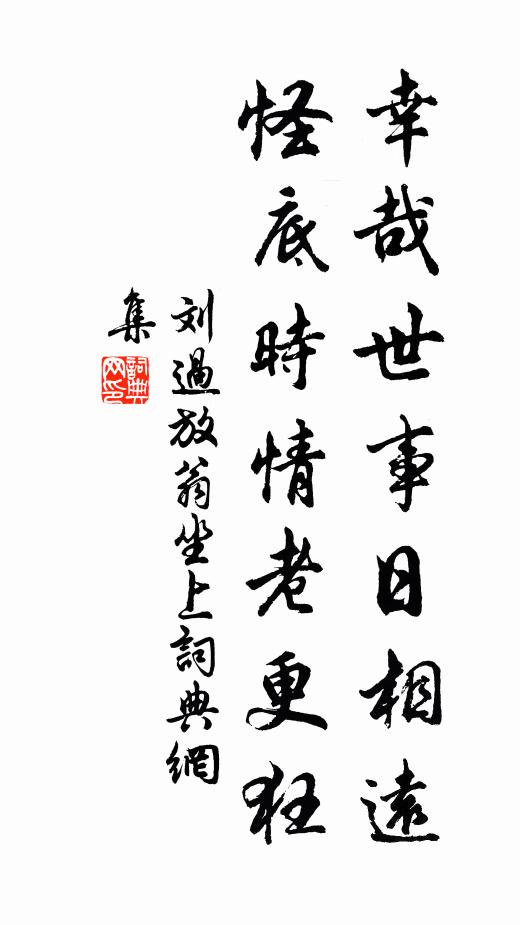 幸哉世事日相遠
怪底時情老更狂
刘過放翁坐上詞典網
集
詞典
网印